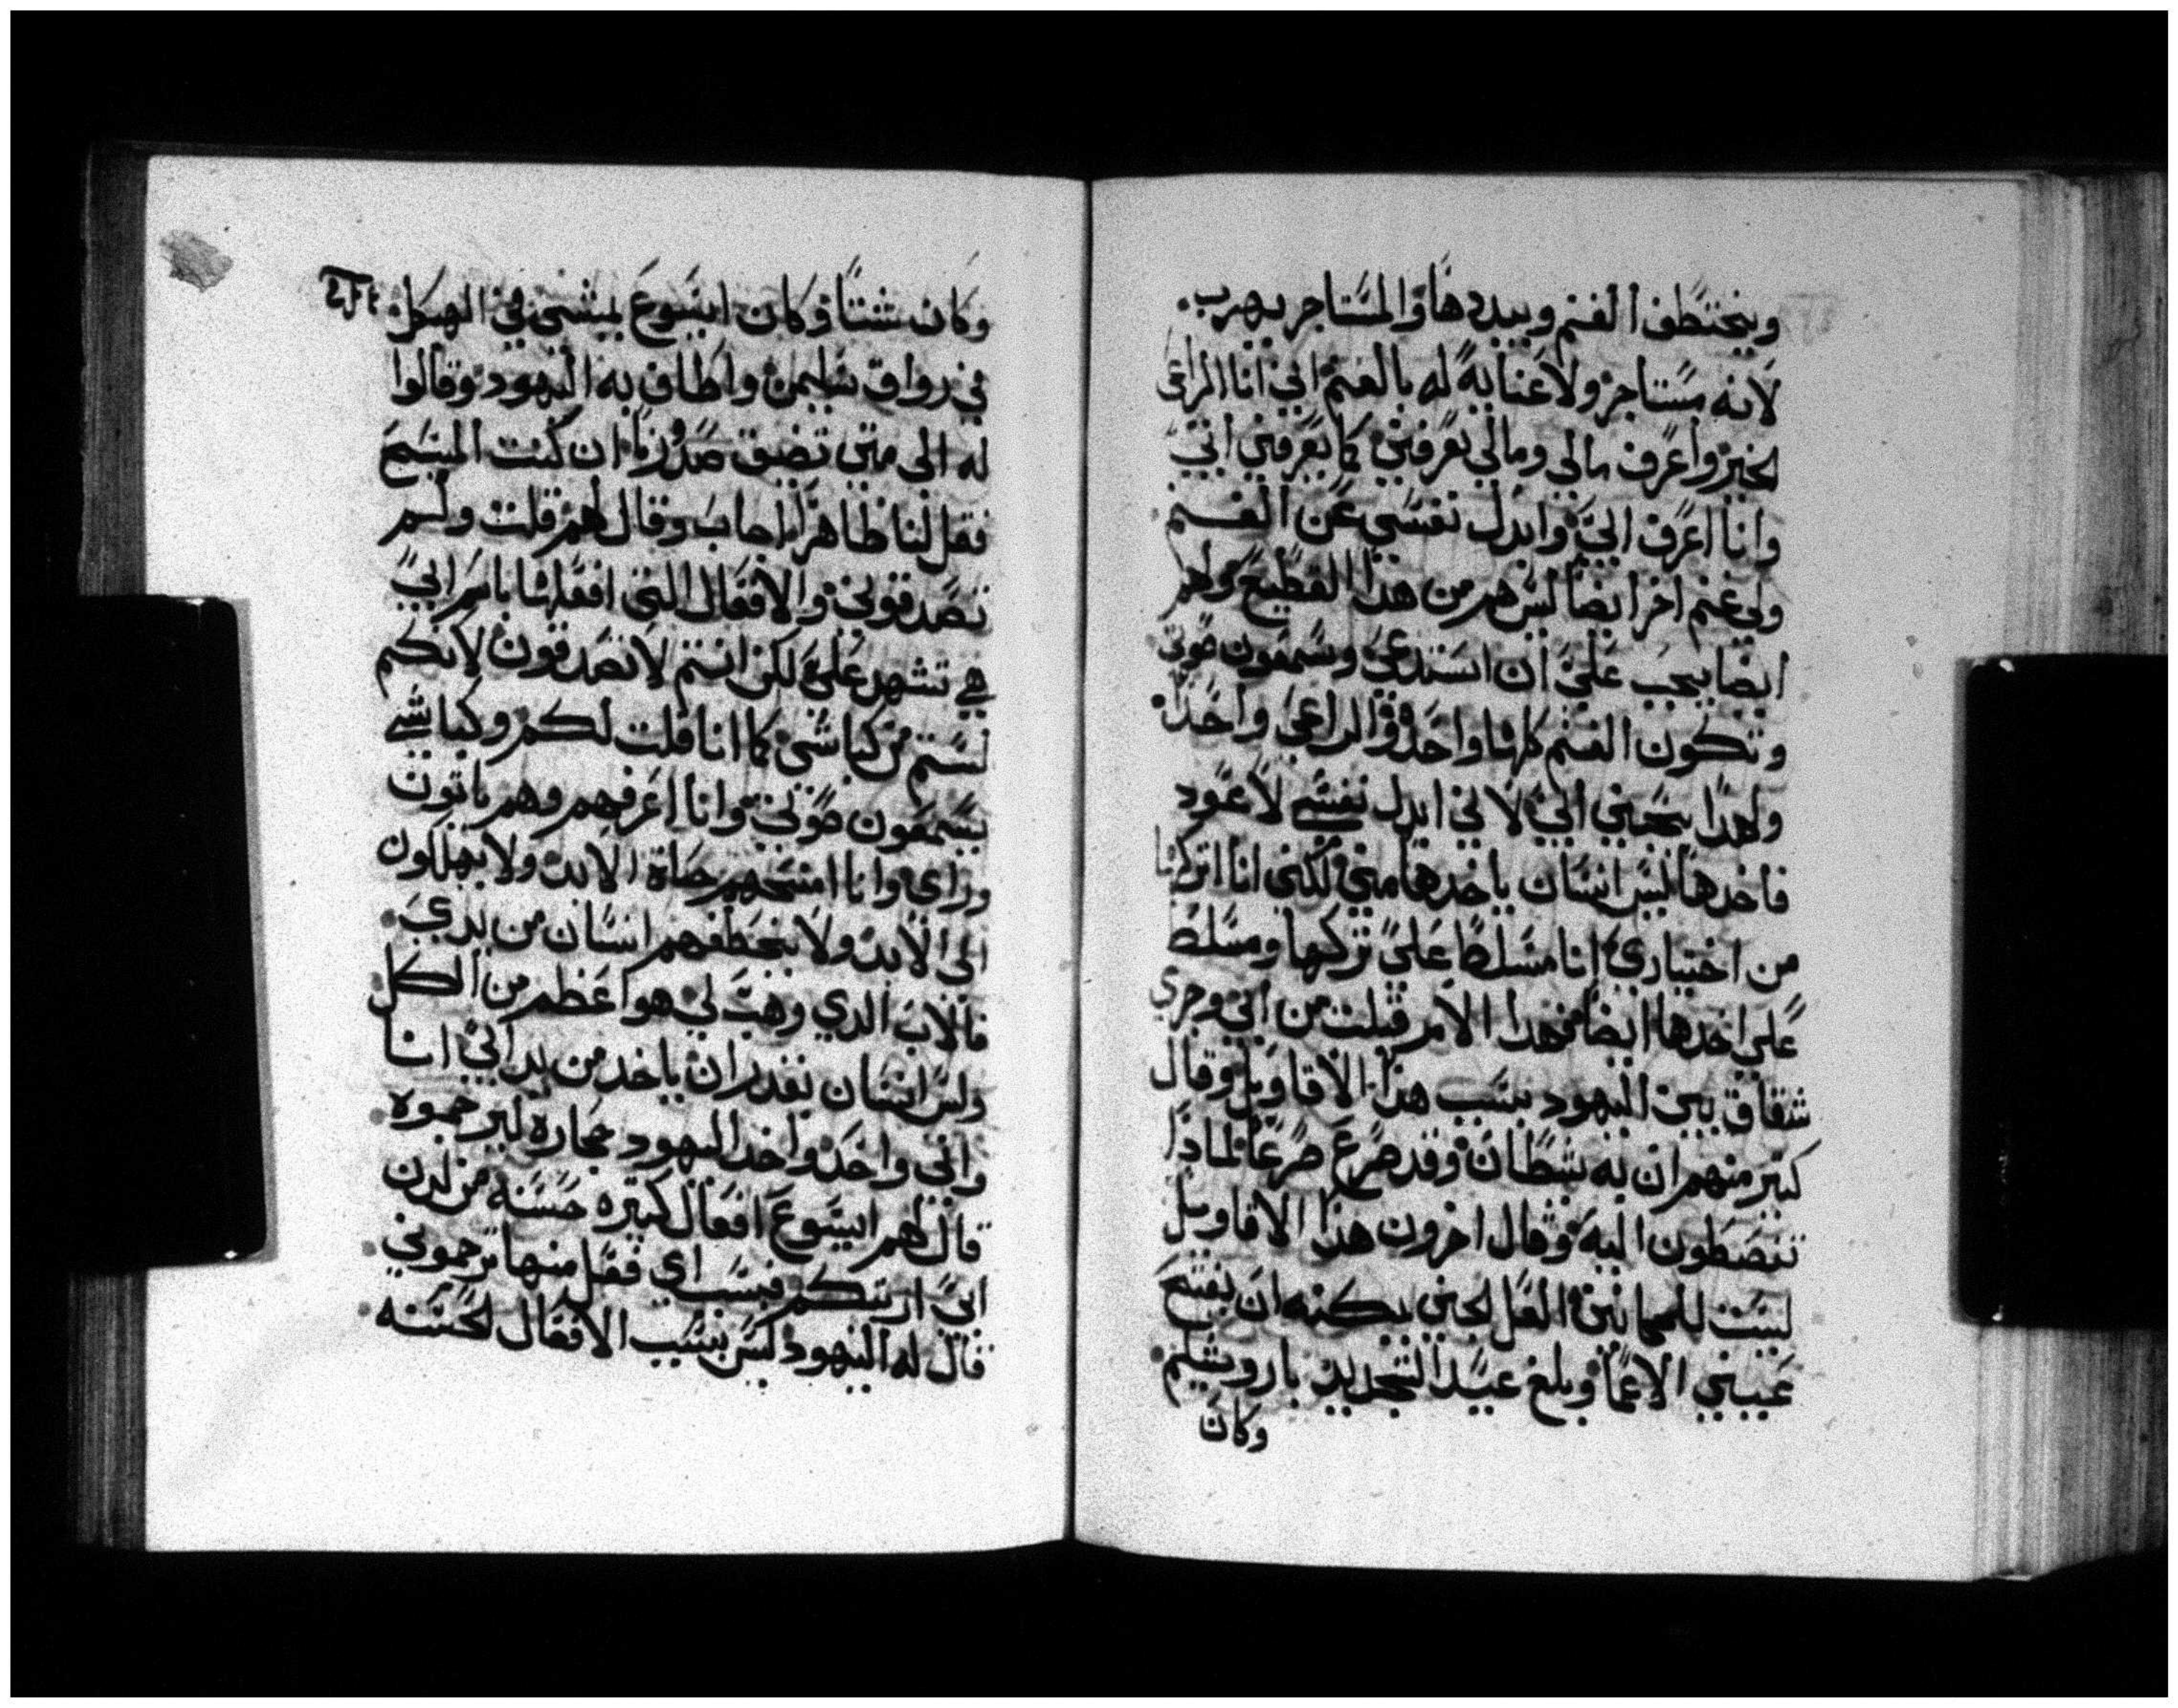 ويختطف الغنم ويبددها والمستاجر يهرب.
لانه مستاجر ولا عناية له بالغنم اني انا الراعي
الخير واعرف مالي ومالي تعرفني كما يعرفني ابي
وانا اعرف ابي وابدل نفسي عن الغنم
ولي غنم اخر ايضا ليس هم من هدا القطيع ولهم
ايضا يجب علي ان استدعي وسمعون صوتي
وتكون الغنم كلها واحدة والراعي واحدا.
ولهدا يحبني ابي لاني ابدل نفسي لاعود
فاخدها ليس انسان ياخدها مني لكني انا اتركها
من اختياري انا مسلطا علي تركها ومسلط
علي اخدها ايضا فهدا الامر قبلت من ابي وجري
شقاق بين اليهود بسبب هذا الاقاويل وقال
كتير منهم ان به شيطان وقد صرع صرعا لماذا
تنصطون اليه وقال اخرون هذا الاقاويل
ليست للمجانين العل لجني يمكنه ان يفتح
عيني الاعما وبلغ عيد التجديد باروشليم.
وكان
وكان شتا وكان ايسوع يمشي في الهيكل
في رواق سليمن واطاف به اليهود وقالوا
له الى متي تضيق صدورنا ان كنت المسيح
فقل لنا ظاهرا اجاب وقال لهم قلت ولم
تصدقوني والافعال التي افعلها باسم ابي
هي تشهد علي لكن انتم لا تصدقون لانكم
لستم من كباشي كما انا قلت لكم وكباشي
يسمعون صوتي وانا اعرفهم وهم ياتون
وراي وانا امنحهم حياة الابد ولا يهلكون
الى الابد ولا يختطفهم انسان من يدي.
فالاب الدي وهب لي هو اعظم من الكل
وليس انسان يقدر ان ياخد من يد ابي انا
وابي واحد واخد اليهود حجاره ليرجموه
قال لهم ايسوع افعال كتيره حسنه من لدن
ابي اريتكم فبسبب اي فعل منها ترجموني
قال له اليهود ليس بسبب الافعال الحسنه